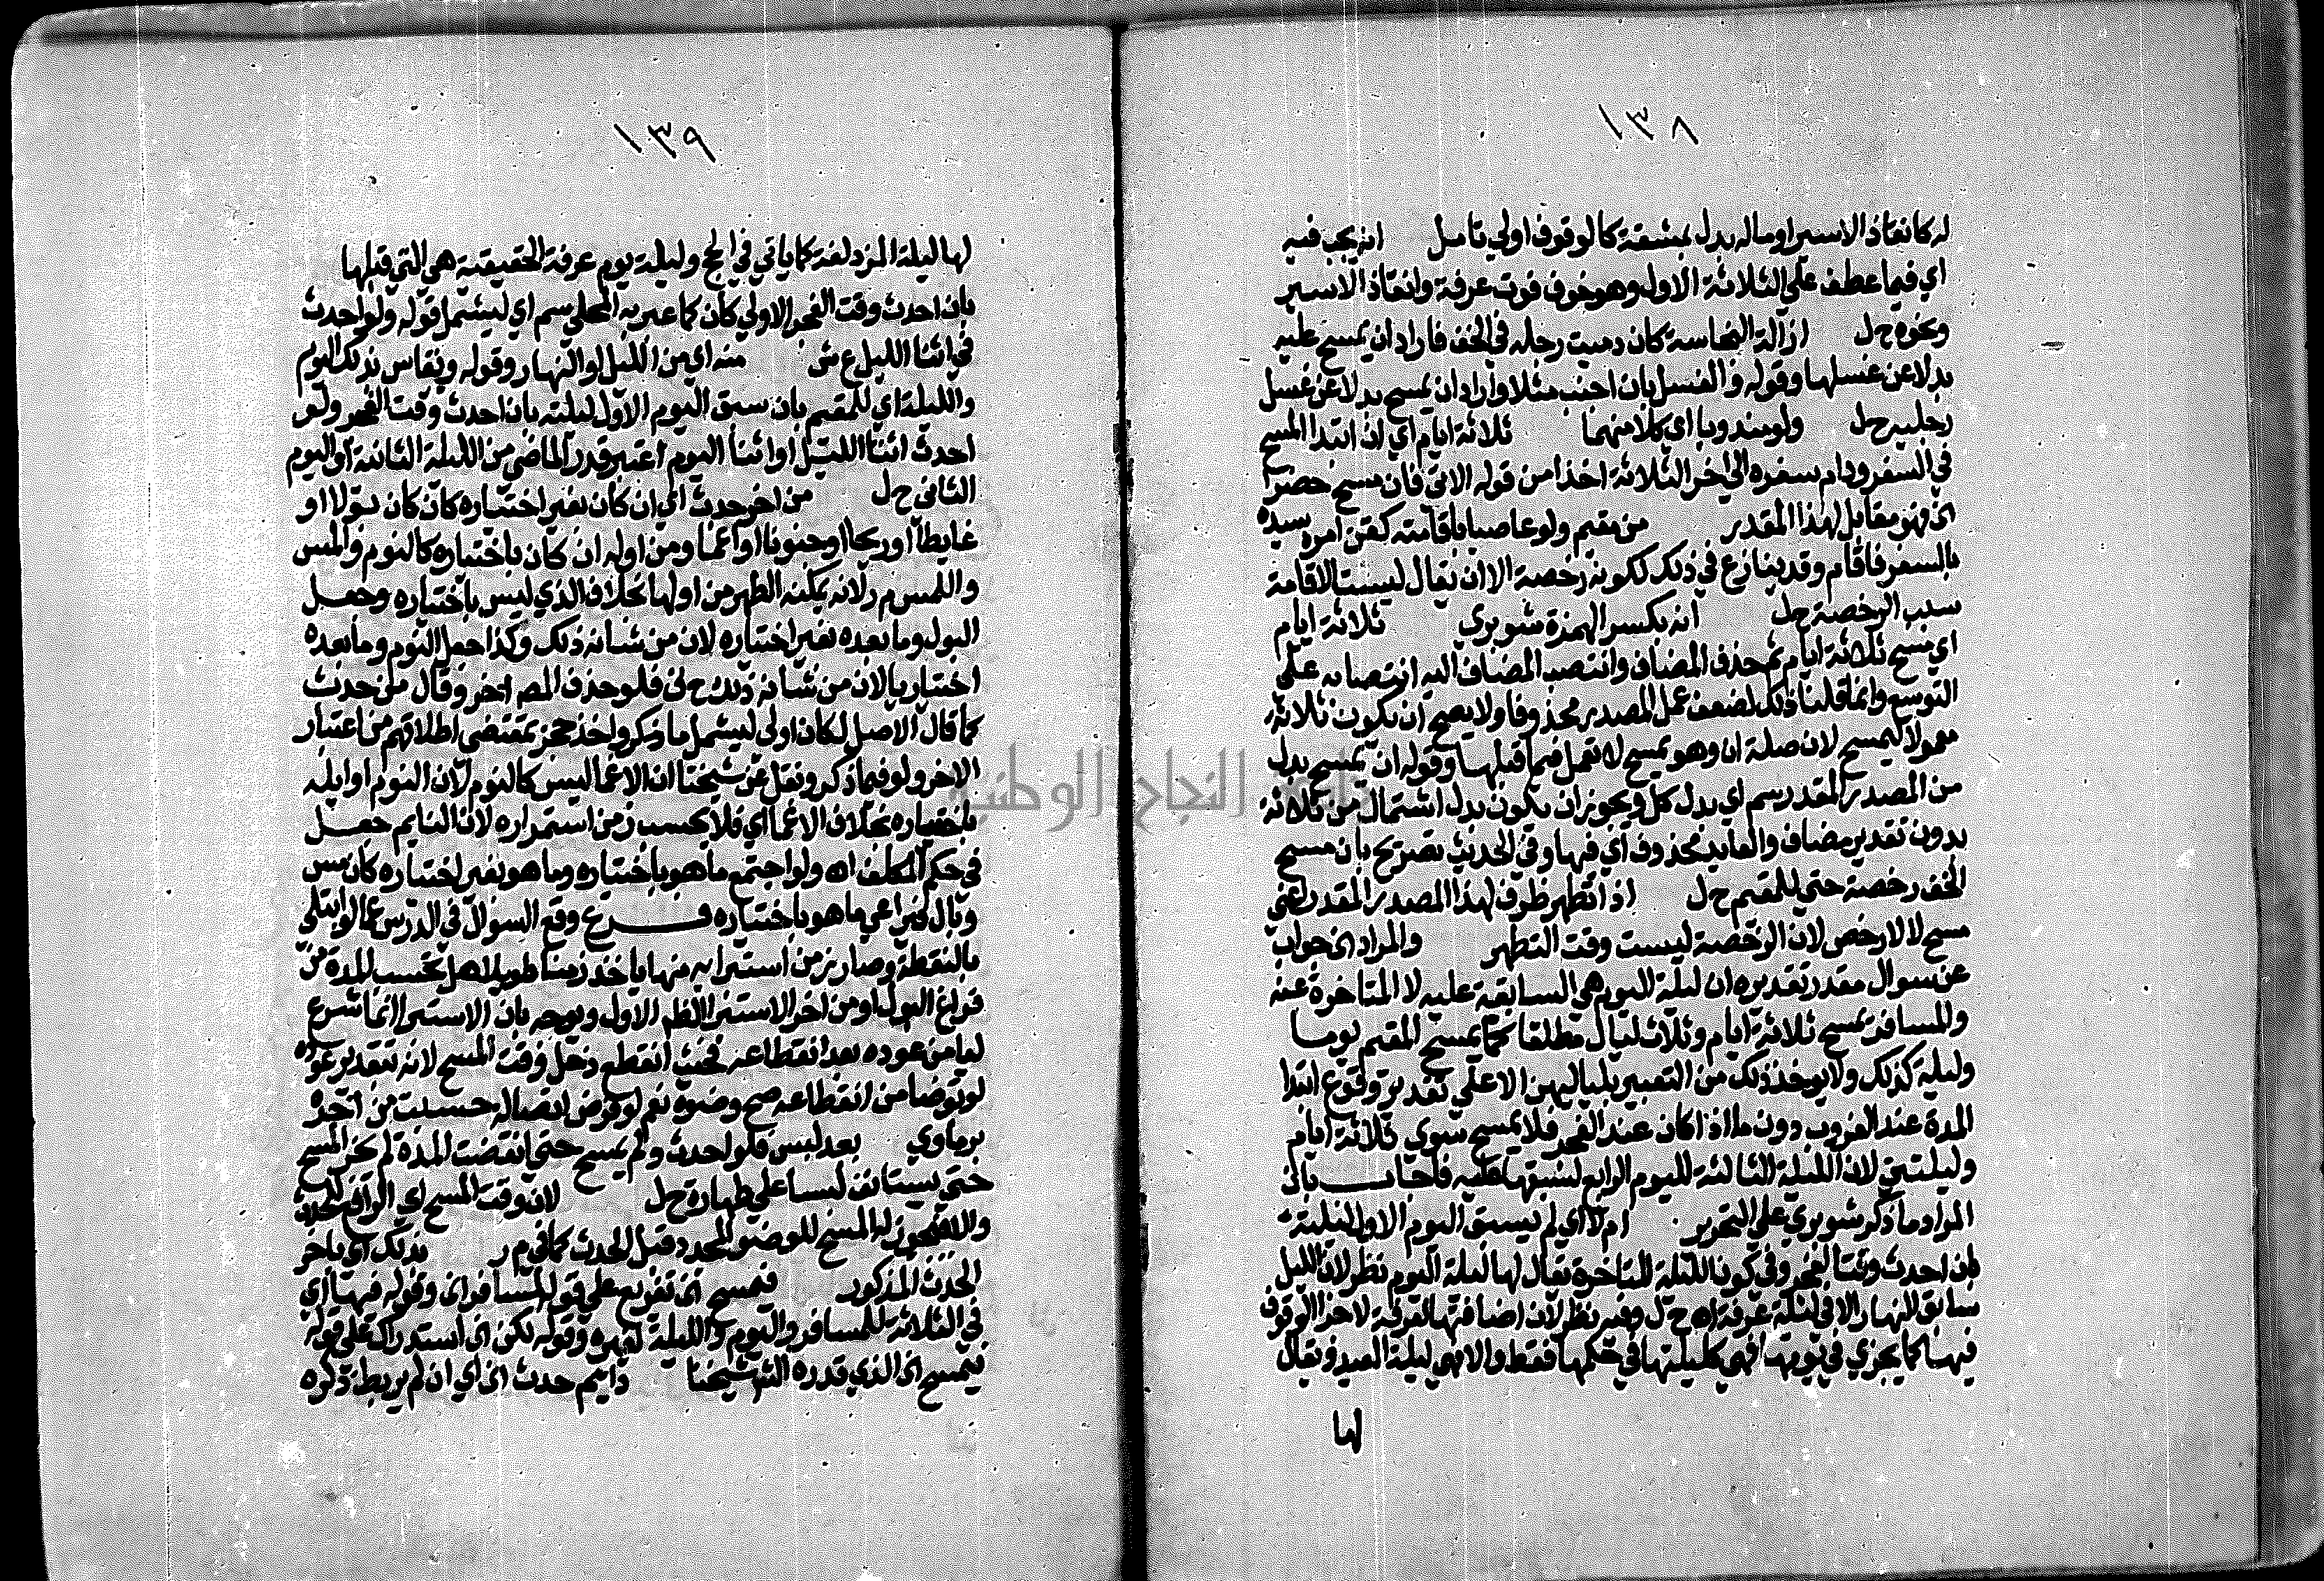 ١٣٨
له كانقاذ الاسير او ماله بدل بمشقة كالوقوف اولي تامل انه يجب فيه
اي فيما عطف علي الثلاثة الاول وهو خوف فوت عرفة وانقاذ الاسير
ونحوه ح ل ازالة النجاسة كان دميت رجله في الخف فاراد ان يمسح عليه
بدلا عن غسلها وقوله والغسل بان اجنب مثلا واراد ان يمسح بدلا عن غسل
رجليه ح ل ولو مندوبا اي كلا منهما ثلاثة ايام اي ان ابتدا المسح
في السفر ودام سفره الي اخر الثلاثة اخذا من قوله الاتي فان مسح حضرا
الخ فهو مقابل لهذا المقدر من مقيم ولو عاصيا باقامته كقن امره سيده
بالسفر فاقام وقد ينازع في ذلك لكونه رخصة الا ان يقال ليست الاقامة
سبب الرخصة ح ل انه بكسر الهمزة شوبري ثلاثة ايام
اي مسح ثلاثة ايام ثم حذف المضاف وانتصب المضاف اليه انتصابه علي
التوسع وانما قلنا ذلك لضعف عمل المصدر محذوفا ولا يصح ان يكون ثلاثة
معمولا ليمسح لان صلة ان وهو يمسح لا تعمل فيما قبلها وقوله ان يمسح بدل
من المصدر المقدر سم اي بدل كل ويجوز ان يكون بدل اشتمال من ثلاثة
بدون تقدير مضاف والعايد محذوف اي فيها وفي الحديث تصريح بان مسح
الخف رخصة حتي للمقيم ح ل اذا تطهر ظرف لهذا المصدر المقدر اعني
مسح لا لارخص لان الرخصة ليست وقت التطهر والمراد الخ جواب
عن سوال مقدر تقديره ان ليلة اليوم هي السابقة عليه لا المتاخرة عنه
والمسافر يمسح ثلاثة ايام وثلاث ليال مطلقا كما يمسح المقيم يوما
وليلة كذلك ولا يوخذ ذلك من التعبير بلياليهن الا علي تقدير وقوع ابتدا
المدة عند الغروب دون ما اذا كان عند الفجر فلا يمسح سوي ثلاثة ايام
وليلتين لان الليلة الثالثة لليوم الرابع لسبقها عليه فاجاب بان
المراد ما ذكر شوبري علي التحرير ام لا اي لم يسبق اليوم الاول ليلته
بان احدث وقت الفجر وفي كون الليلة المتاخرة يقال لها ليلة اليوم نظر لان الليل
سابق النهار الا في ليلة عرفة اه ح ل وفيه نظر لان اضافتها لعرفة لاجزا الوقوف
فيها كما يجزي في يومها فهي كليلتها في حكمها فقط والا فهي ليلة العيد ويقال
لها
١٣٩
لها ليلة المزدلفة كما ياتي في الحج وليلة يوم عرفة الحقيقية هي التي قبلها
بان احدث وقت الفجر الاولي كان كما عبر به المحلي سم اي ليشمل قوله ولو احدث
في اثنا الليل ع ش منه اي من الليل او النهار وقوله ويقاس بذلك اليوم
والليلة اي للمقيم بان سبق اليوم الاول ليلته بان احدث وقت الفجر ولو
احدث اثنا الليل او اثنا اليوم اعتبر قدر الماضي من الليلة الثانية او اليوم
الثاني ح ل من اخر حدث اي ان كان بغير اختياره كان كان بولا او
غايطا او ريحا او جنونا او اغما ومن اوله ان كان باختياره كالنوم والمس
واللمس م ر لانه يمكنه الطهر من اولها بخلاف الذي ليس باختياره وجعل
البول وما بعده بغير اختياره لان من شانه ذلك وكذا جعل النوم وما بعده
اختياريا لان من شانه ذلك ح ف فلو حذف المص اخر وقال من حدث
كما قال الاصل لكان اولي ليشمل ما ذكر واخذ حج بمقتضي اطلاقهم من اعتبار
الاخر ولو فيما ذكر ونقل عن شيخنا ان الاغما ليس كالنوم لان النوم اوايله
باختياره بخلاف الاغما اي فلا يحسب زمن استمراره لان النايم جعل
في حكم المكلف اه ولو اجتمع ما هو باختياره وما هو بغير اختياره كان مس
وبال فيراعي ما هو باختياره فرع وقع السوال في الدرس عما لو ابتلي
بالنقطة وصار زمن استبرايه منها ياخذ زمنا طويلا هل تحسب المدة من
فراغ البول او من اخر الاستبرا الظهر الاول ويوجه بان الاستبرا انما شرع
ليامن عوده بعد انقطاعه فحيث انقطع دخل وقت المسح لانه بتقدير عوده
لو توضا من انقطاعه صح وضوه نعم لو فرض اتصاله حسبت من اخره
برماوي بعد لبس فلو احدث ولم يمسح حتي انقضت المدة لم يجز المسح
حتي يستانف لبسا علي طهارة ح ل لان وقت المسح اي الرافع للحدث
والا فيجوز له المسح للوضو المجدد قبل الحدث كما في م ر بذلك اي باخر
الحدث المذكور فيمسح الخ تفريع علي قوله لمسافر الخ وقوله فيها اي
في الثلاثة للمسافر واليوم والليلة لغيره وقوله لكن الخ استدراك علي قوله
فيمسح الخ الذي قدره الش شيخنا دايم حدث الخ اي ان لم يربط ذكره